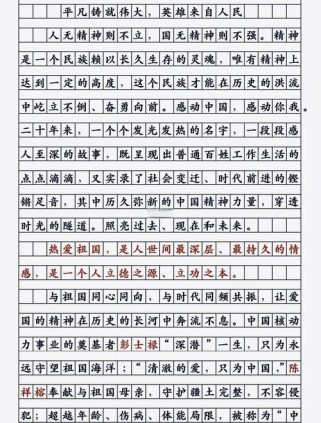 平凡铸就伟大，英雄来自人民
人无精神则不立，国无精神则不强。精神
是一个民族赖以长久生存的灵魂，唯有精神上
达到一定的高度，这个民族才能在历史的洪流
中屹立不倒、奋勇向前。感动中国，感动你我。
二十年来，一个个发光发热的名字，一段段感
人至深的故事，既呈现出普通百姓工作生活的
点点滴滴，又实录了社会变迁、时代前进的铿
锵足音，其中历久弥新的中国精神力量，穿透
时光的隧道。照亮过去、现在和未来。
热爱祖国，是人世间最深层、最持久的情
感，是一个人立德之源、立功之本。
与祖国同心同向，与时代同频共振，让爱
国的精神在历史的长河中奔流不息。中国核动
力事业的奠基者彭士禄“深潜”一生，只为永
远守望祖国海洋；“清澈的爱，只为中国，”陈
祥榕奉献与祖国母亲，守护疆土完整，不容侵
犯；超越年龄、伤病、体能局限，被称为“中